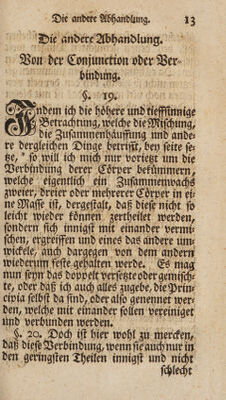 Die andere Abhandlung. 13
Die andere Abhandlung.
Von der Conjunction oder Ver-
bindung.
§. 19.
Indem ich die höhere und tieffsinnige
Betrachtung, welche die Mischung,
die Zusammenhäuffung und ande-
re dergleichen Dinge betrifft, bey seite se-
tze, so will ich mich nur vorietzt um die
Verbindung derer Cörper bekümmern,
welche eigentlich ein Zusammenwachs
zweier, dreier oder mehrerer Cörper in ei-
ne Masse ist, dergestalt, daß diese nicht so
leicht wieder können zertheilet werden,
sondern sich innigst mit einander vermi-
schen, ergreiffen und eines das andere um-
wickele, auch dargegen von dem andern
wiederum feste gehalten werde. Es mag
nun seyn das doppelt versetzte oder gemisch-
te, oder daß ich auch alles zugebe, die Prin-
cipia selbst da sind, oder also genennet wer-
den, welche mit einander sollen vereiniget
und verbunden werden.
§. 20. Doch ist hier wohl zu mercken,
daß diese Verbindung, wenn sie auch nur in
den geringsten Theilen innigst und nicht
schlecht